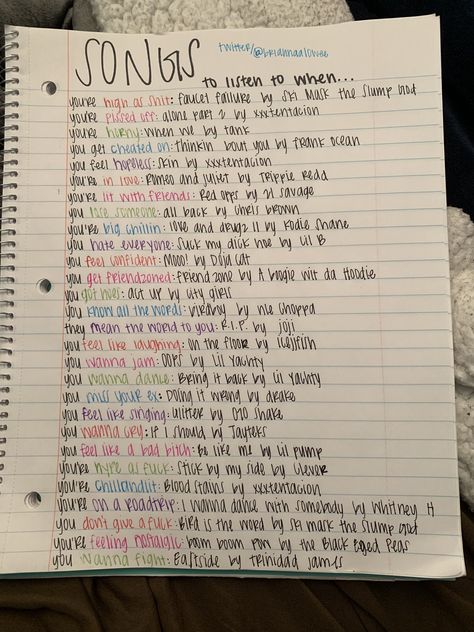 SONGS
twitter/@briannaalowee
to listen to when...
you're high as shit: faucet failure by Ski Mask the Slump God
you're pissed off: alone part 2 by xxxtentacion
you're horny: when we by tank
you get cheated on: thinkin bout you by frank ocean
you feel hopeless: Skin by xxxtentacion
you're in love: Romeo and Juliet by Trippie Redd
you're lit with friends: Red opps by 21 savage
you lose someone: all back by chris brown
you're big chillin: love and drugz II by Kodie Shane
you hate everyone: Suck my dick hoe by Lil B
you feel confident: Mooo! by Doja Cat
you get friendzoned: friend zone by A boogie wit da Hoodie
you got hoes: act up by city girls
you know all the words: by nle choppa
they mean the world to you: R.I.P. by joji
you feel like laughing: on the floor by icejjfish
you wanna jam: oops by Lil Yachty
you wanna dance: Bring it back by Lil Yachty
you miss your ex: Doing it wrong by drake
you feel like singing: Glitter by 070 shake
you wanna cry: if I should by Jayteks
you feel like a bad bitch: Be like me by Lil pump
you're hype as fuck: Stick by my side by Clever
you're chillandlit: Blood stains by xxxtentacion
you're on a roadtrip: I wanna dance with somebody by Whitney H
you don't give a fuck: Bird is the word by Ski mask the slump god
you're feeling nostalgic: boom boom pow by the Black Eyed Peas
you wanna fight: Eastside by Trinidad James